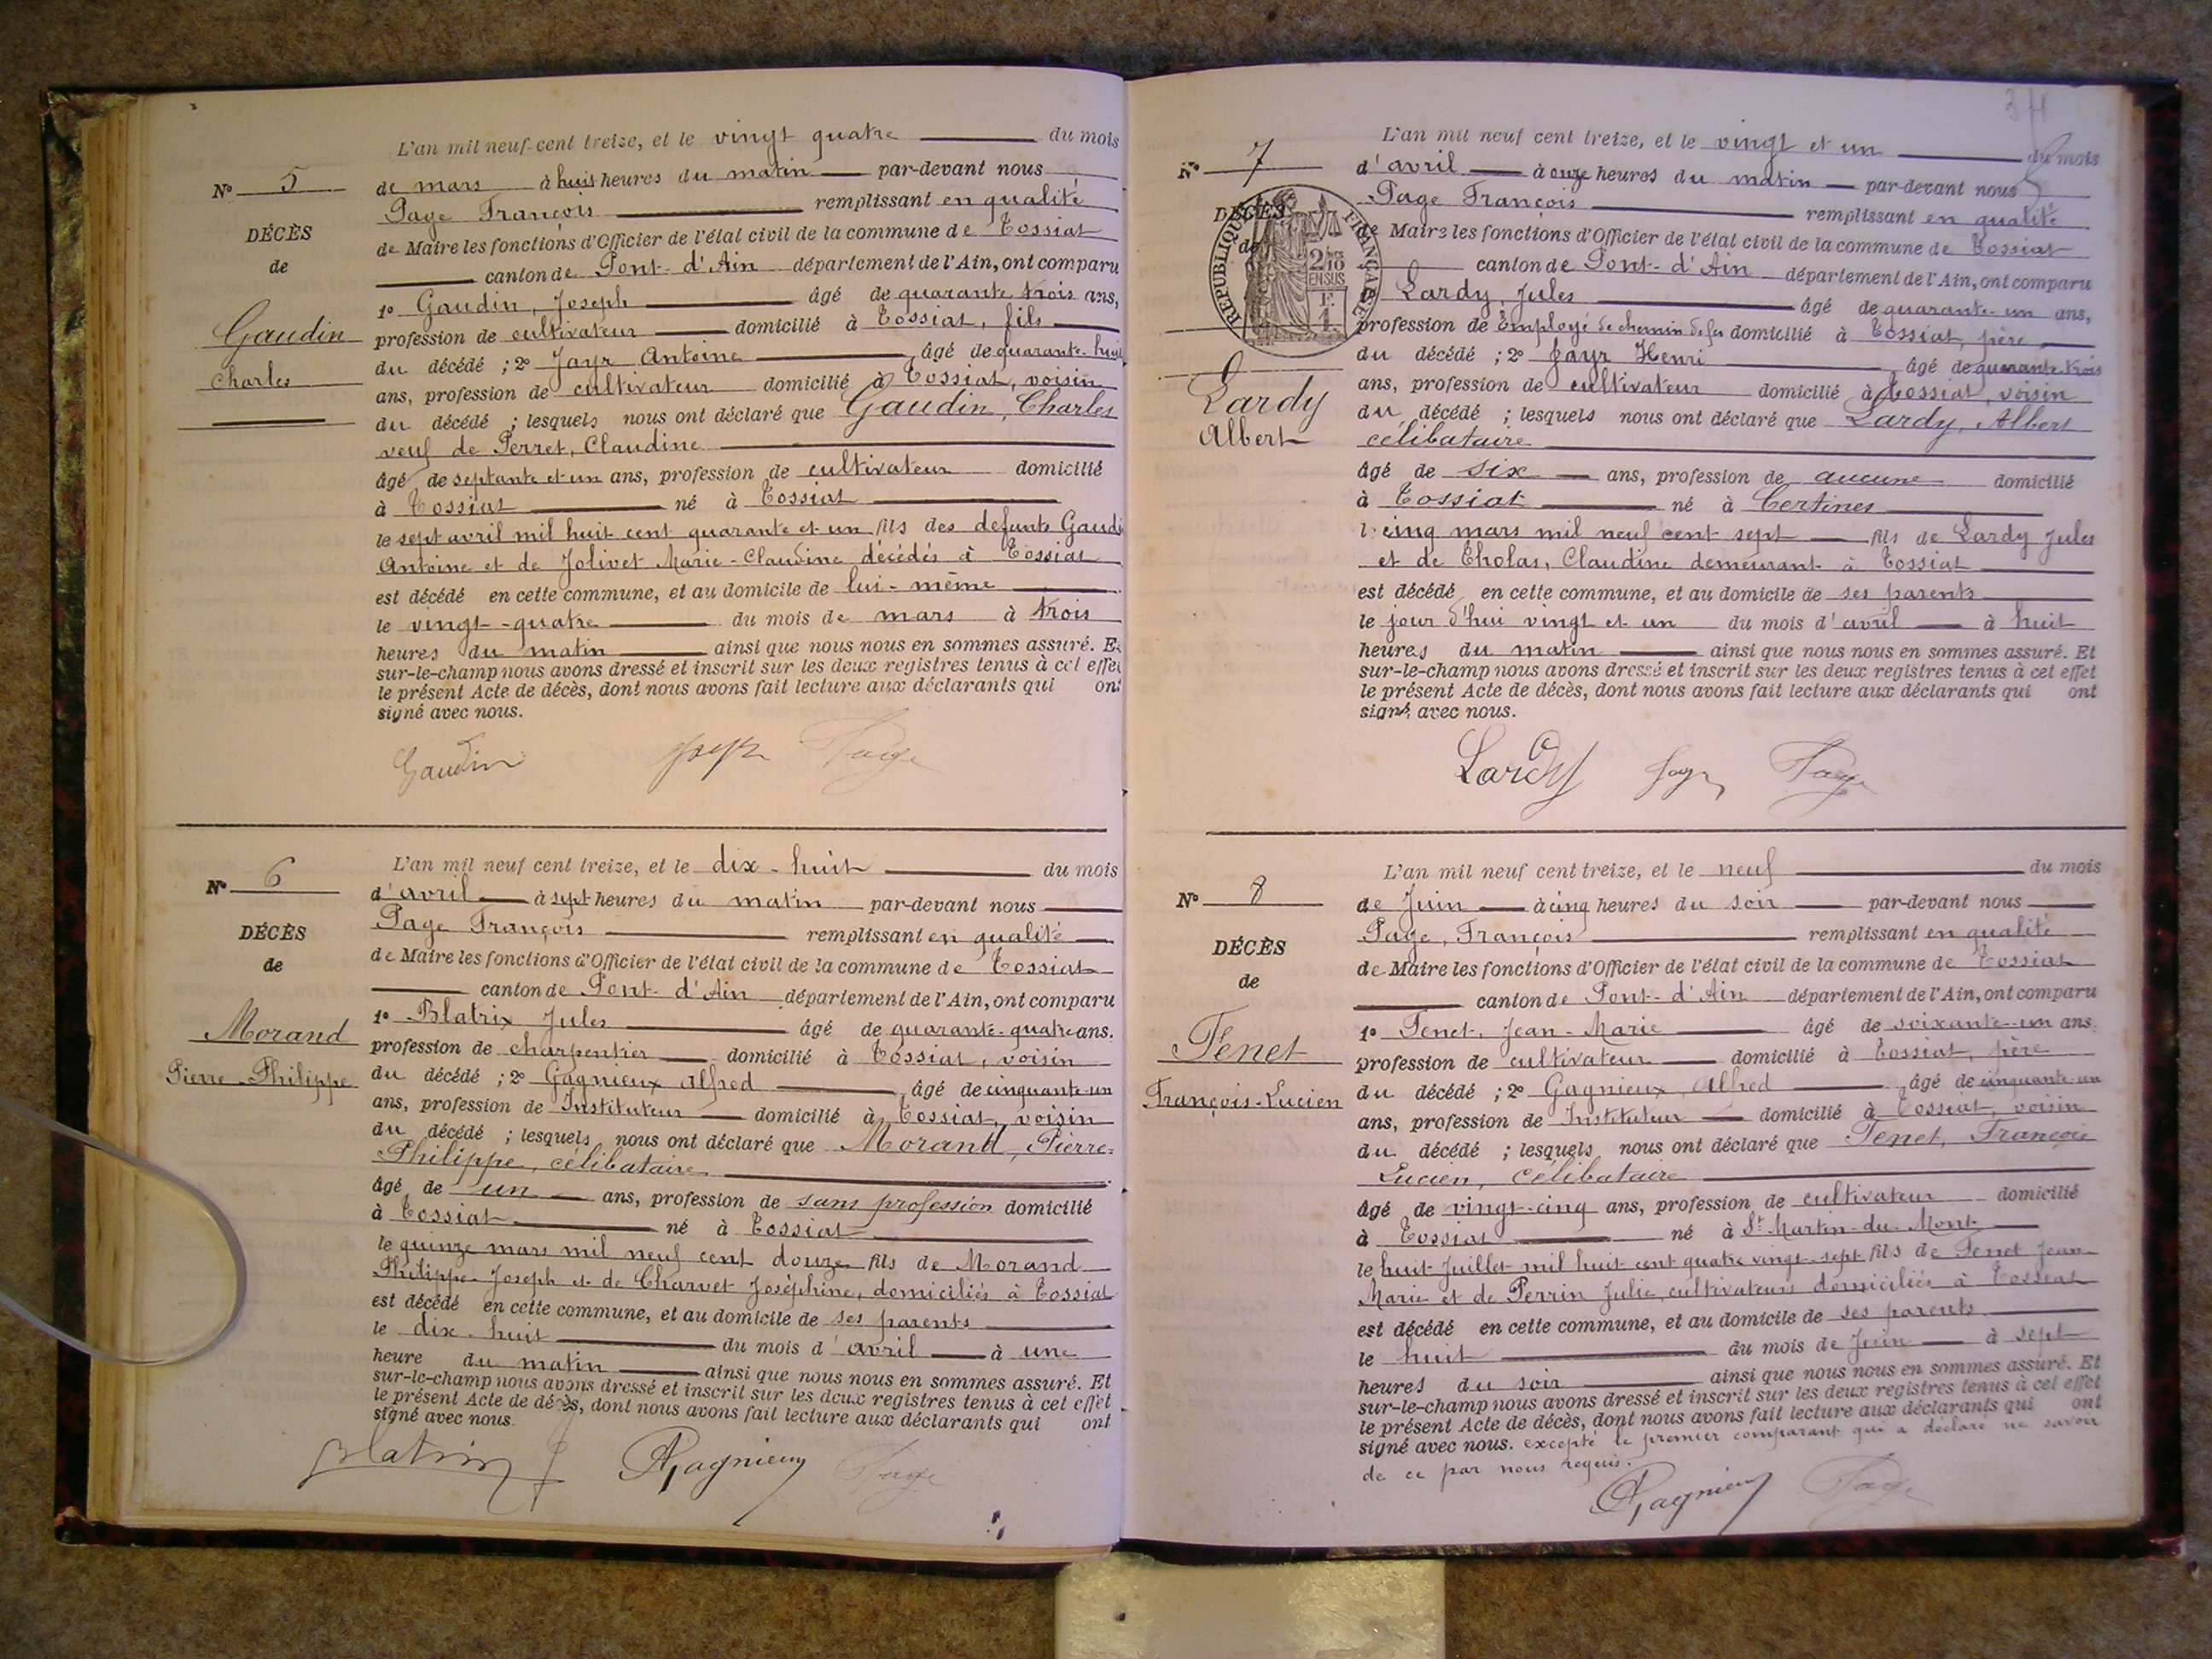 L'an mil neuf cent treize, et le vingt quatre du mois
N° 5
de mars à huit heures du matin par-devant nous
Page François remplissant en qualité
DÉCÈS
de Maire les fonctions d'Officier de l'état civil de la commune de Tossiat
de
canton de Pont-d'Ain département de l'Ain, ont comparu
1° Gaudin, Joseph âgé de quarante trois ans,
Gaudin
profession de cultivateur domicilié à Tossiat, fils
du décédé ; 2° Jayr Antoine, âgé de quarante-huit
Charles
ans, profession de cultivateur domicilié à Tossiat, voisin
du décédé ; lesquels nous ont déclaré que Gaudin, Charles
veuf de Perret, Claudine
âgé de septante et un ans, profession de cultivateur domicilié
à Tossiat né à Tossiat
le sept avril mil huit cent quarante et un fils des defunts Gaudi
Antoine et de Jolivet Marie-Claudine décédés à Tossiat
est décédé en cette commune, et au domicile de lui-même
le vingt-quatre du mois de mars à trois
heures du matin ainsi que nous nous en sommes assuré. Et
sur-le-champ nous avons dressé et inscrit sur les deux registres tenus à cet effet
le présent Acte de décès, dont nous avons fait lecture aux déclarants qui ont
signé avec nous.
Gaudin Page
L'an mil neuf cent treize, et le dix-huit du mois
N° 6
d'avril à sept heures du matin par-devant nous
Page François remplissant en qualité
DÉCÈS
de Maire les fonctions d'Officier de l'état civil de la commune de Tossiat
de
canton de Pont-d'Ain département de l'Ain, ont comparu
1° Blatrix Jules âgé de quarante-quatre ans.
Morand
profession de charpentier domicilié à Tossiat, voisin
Pierre-Philippe
du décédé ; 2° Gagnieux Alfred, âgé de cinquante-un
ans, profession de Instituteur domicilié à Tossiat, voisin
du décédé ; lesquels nous ont déclaré que Morand, Pierre-
Philippe, célibataire
âgé de un ans, profession de sans profession domicilié
à Tossiat né à Tossiat
le quinze mars mil neuf cent douze fils de Morand
Philippe-Joseph et de Charvet Joséphine, domiciliés à Tossiat
est décédé en cette commune, et au domicile de ses parents
le dix-huit du mois d'avril à une
heure du matin ainsi que nous nous en sommes assuré. Et
sur-le-champ nous avons dressé et inscrit sur les deux registres tenus à cet effet
le présent Acte de décès, dont nous avons fait lecture aux déclarants qui ont
signé avec nous.
Blatrix AGagnieux Page
34
L'an mil neuf cent treize, et le vingt et un du mois
N° 7
d'avril à onze heures du matin par-devant nous
Page François remplissant en qualité
DÉCÈS
de Maire les fonctions d'Officier de l'état civil de la commune de Tossiat
de
RÉPUBLIQUE FRANÇAISE
2/10 EN SUS
F.
1.
canton de Pont-d'Ain département de l'Ain, ont comparu
Lardy, Jules âgé de quarante-un ans,
profession de Employé de chemin de fer domicilié à Tossiat, père
du décédé ; 2° Jayr Henri, âgé de quarante-trois
Lardy
ans, profession de cultivateur domicilié à Tossiat, voisin
du décédé ; lesquels nous ont déclaré que Lardy, Albert
Albert
célibataire
âgé de six ans, profession de aucune domicilié
à Tossiat né à Certines
l cinq mars mil neuf cent sept fils de Lardy Jules
et de Cholas, Claudine demeurant à Tossiat
est décédé en cette commune, et au domicile de ses parents
le jour d'hui vingt et un du mois d'avril à huit
heures du matin ainsi que nous nous en sommes assuré. Et
sur-le-champ nous avons dressé et inscrit sur les deux registres tenus à cet effet
le présent Acte de décès, dont nous avons fait lecture aux déclarants qui ont
signé avec nous.
Lardy Jayr Page
L'an mil neuf cent treize, et le neuf du mois
N° 8
de Juin à cinq heures du soir par-devant nous
Page, François remplissant en qualité
DÉCÈS
de Maire les fonctions d'Officier de l'état civil de la commune de Tossiat
de
canton de Pont-d'Ain département de l'Ain, ont comparu
1° Tenet, Jean-Marie âgé de soixante-un ans.
Tenet
profession de cultivateur domicilié à Tossiat, père
François-Lucien
du décédé ; 2° Gagnieux, Alfred, âgé de cinquante-un
ans, profession de Instituteur domicilié à Tossiat, voisin
du décédé ; lesquels nous ont déclaré que Tenet, François
Lucien, célibataire
âgé de vingt-cinq ans, profession de cultivateur domicilié
à Tossiat né à St Martin-du-Mont
le huit Juillet mil huit cent quatre vingt-sept fils de Tenet Jean
Marie et de Perrin Julie, cultivateurs domiciliés à Tossiat
est décédé en cette commune, et au domicile de ses parents
le huit du mois de Juin à sept
heures du soir ainsi que nous nous en sommes assuré. Et
sur-le-champ nous avons dressé et inscrit sur les deux registres tenus à cet effet
le présent Acte de décès, dont nous avons fait lecture aux déclarants qui ont
signé avec nous. excepté le premier comparant qui a déclaré ne savoir
de ce par nous requis.
AGagnieux Page